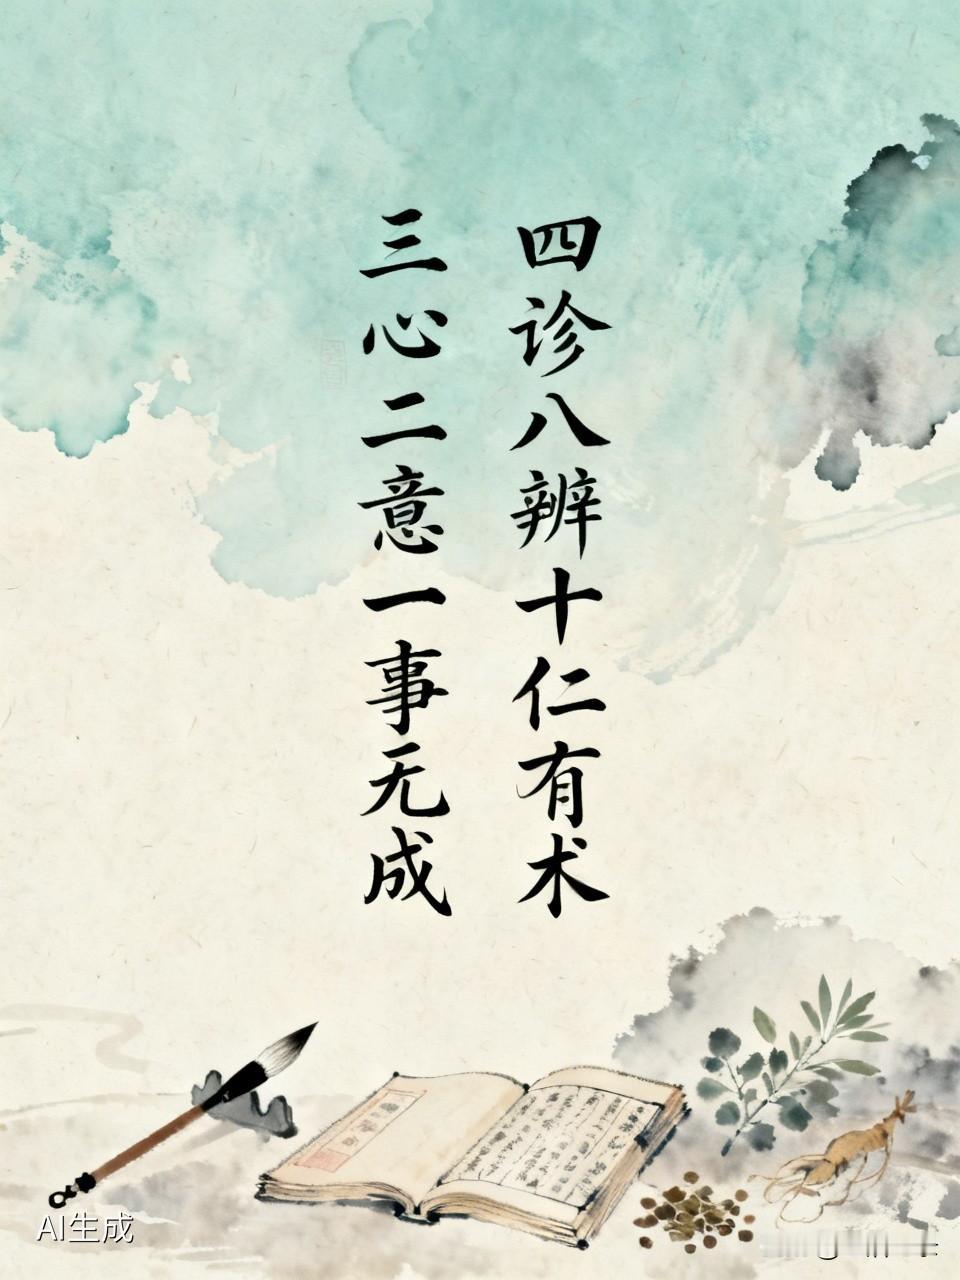 四诊八辨十仁有术
三心二意一事无成
AI生成